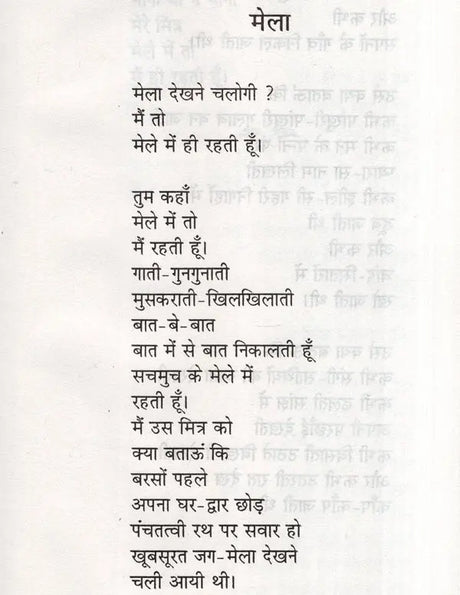 मेला
मेला देखने चलोगी ?
मैं तो
मेले में ही रहती हूँ।
तुम कहाँ
मेले में तो
मैं रहती हूँ।
गाती-गुनगुनाती
मुसकराती-खिलखिलाती
बात-बे-बात
बात में से बात निकालती हूँ
सचमुच के मेले में
रहती हूँ।
मैं उस मित्र को
क्या बताऊं कि
बरसों पहले
अपना घर-द्वार छोड़
पंचतत्वी रथ पर सवार हो
खूबसूरत जग-मेला देखने
चली आयी थी।